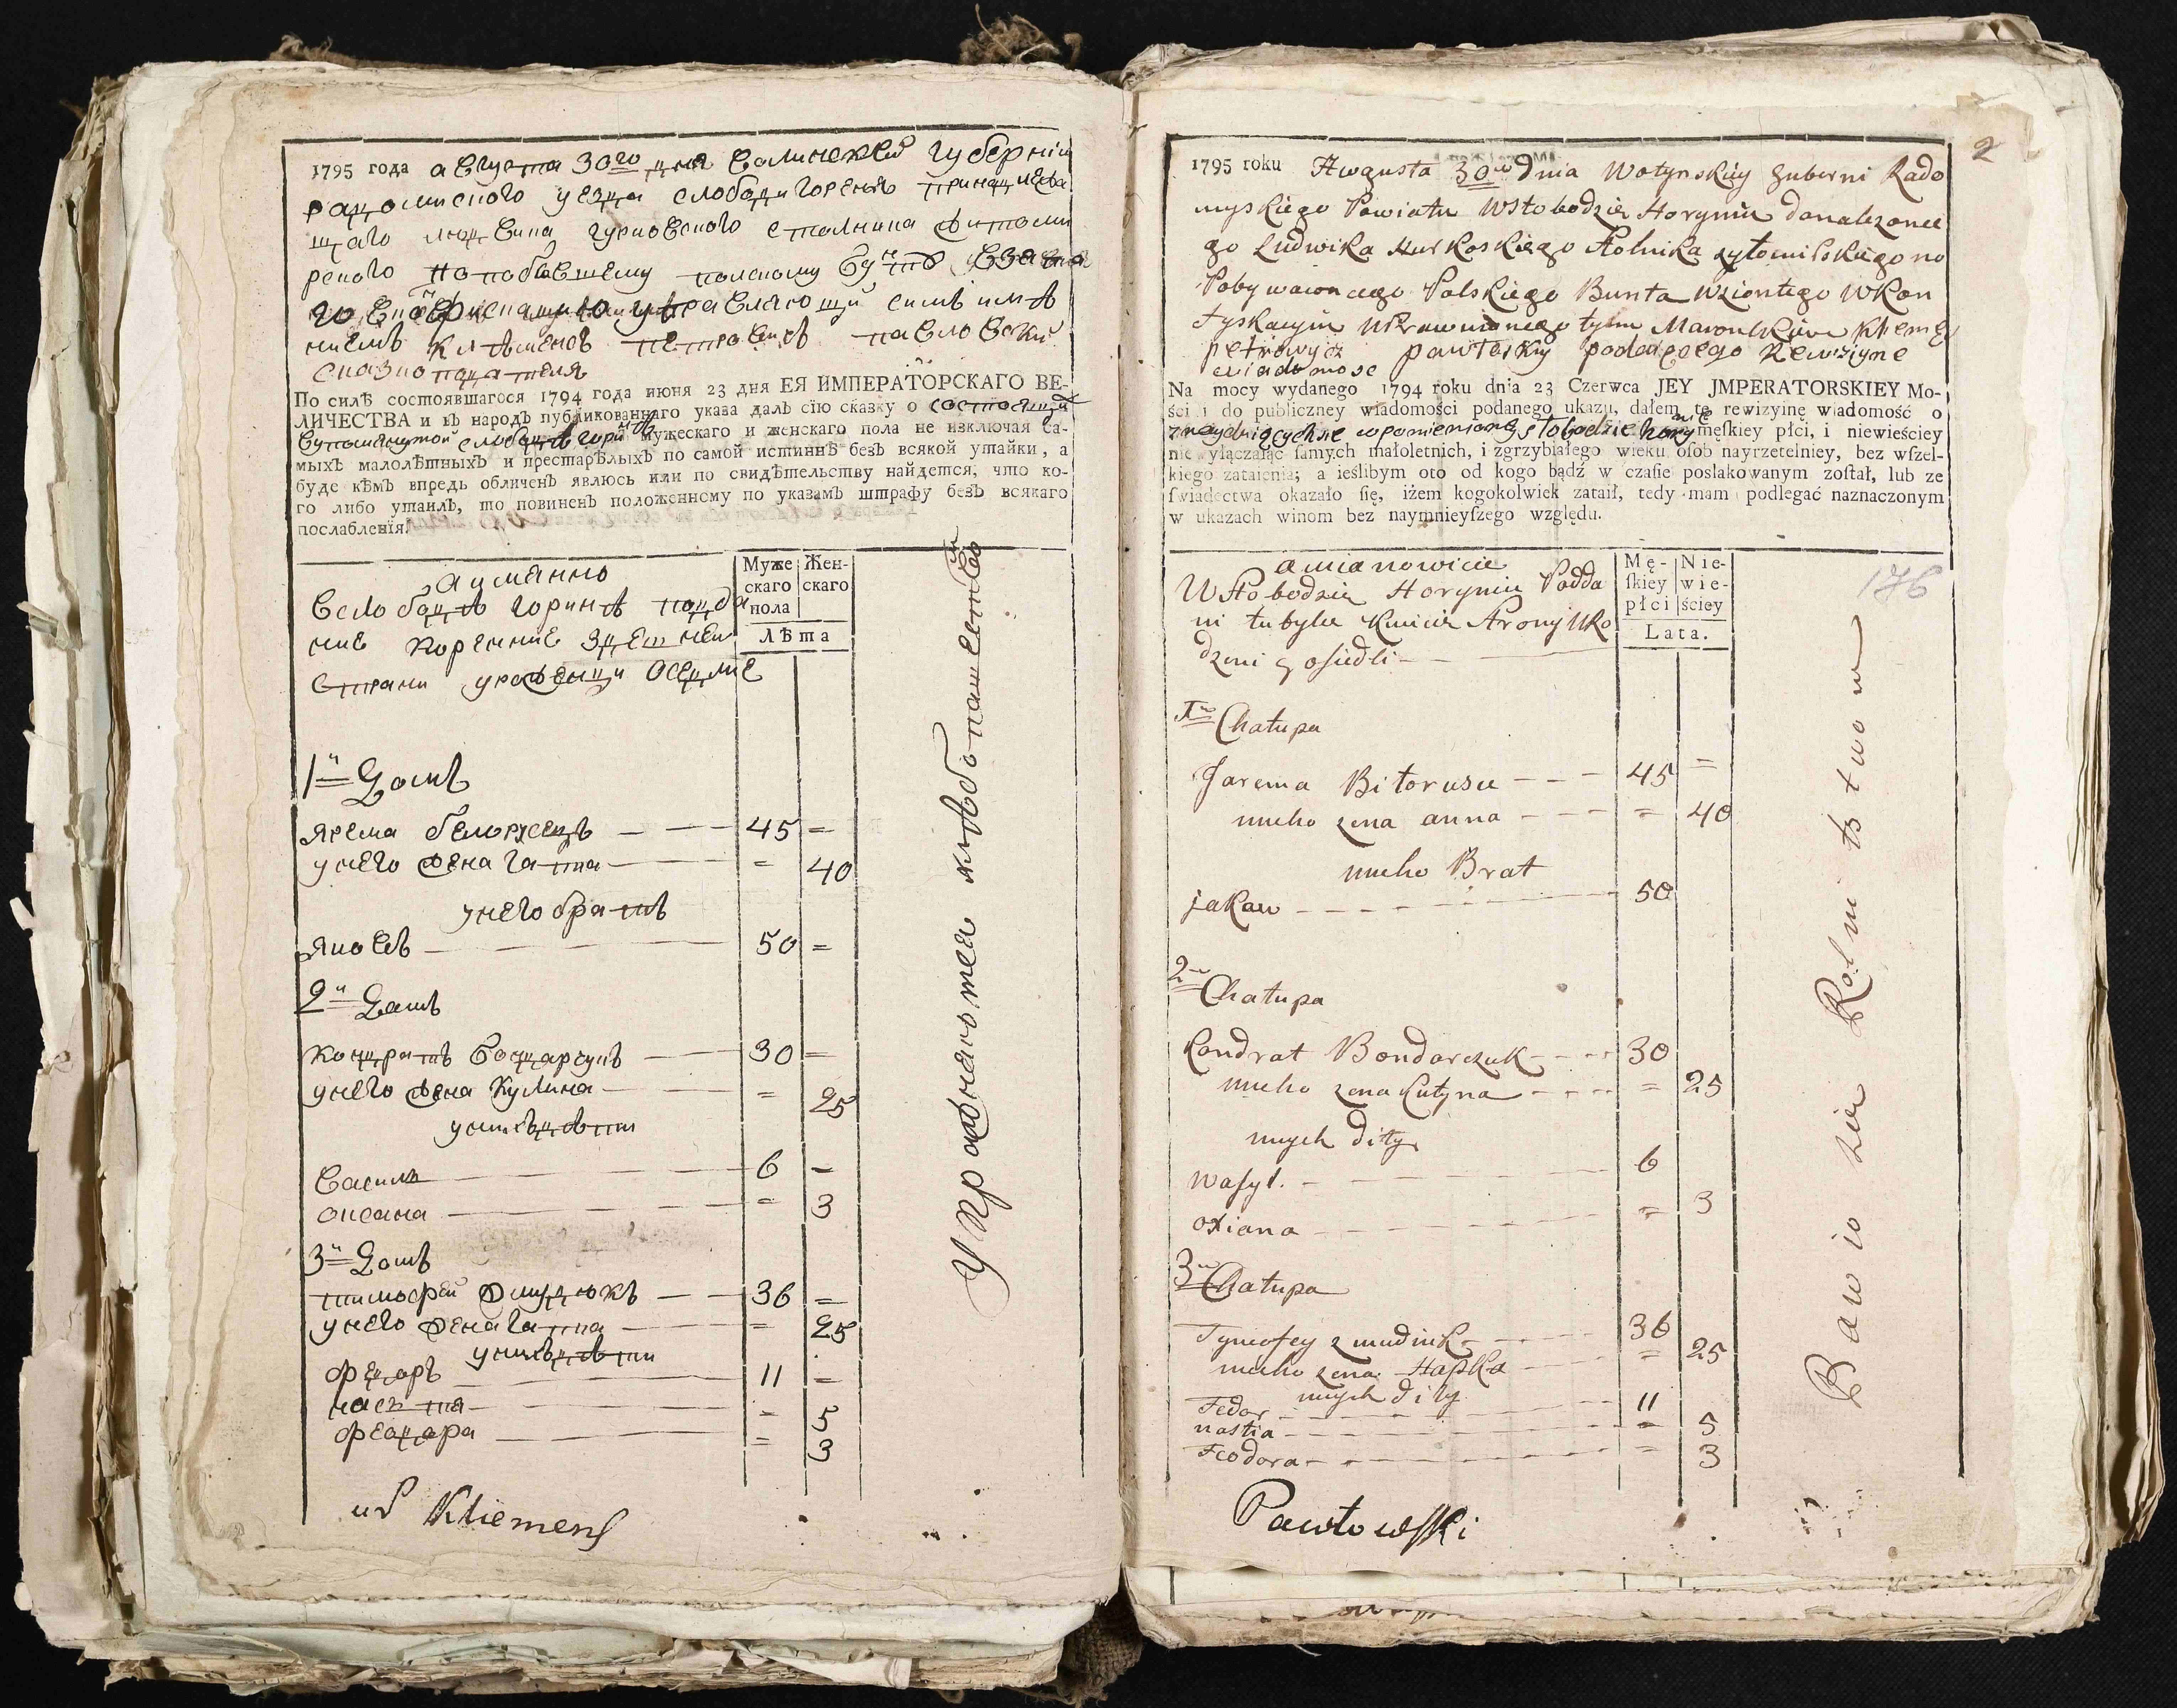 1795 года августа 30го дня волинской губернии
радомиского уезда слободи горення принадлежа
щаго людвика гурковского столника житоми
рского по побывшему полскому бунту взята
го управляющий симъ име
ниемъ клѣменсъ петровичъ павловский
сказкоподателя
По силѣ состоявшагося 1794 года июня 23 дня ЕЯ ИМПЕРАТОРСКАГО ВЕ-
ЛИЧЕСТВА и въ народъ публикованнаго указа далъ сїю сказку о состоящихъ
вупомянутой слободѣ мужескаго и женскаго пола не изключая са-
мыхъ малолѣтныхъ и престарѣлыхъ по самой истиннѣ безъ всякой утайки, а
буде кѣмъ впредь обличенъ явлюсь или по свидѣтельству найдется, что ко-
го либо утаилъ, то повиненъ положенному по указамъ штрафу безъ всякаго
послабленїя.
аимянно
Вслободѣ горинѣ подда
ние коренние здешней
страни уроженци оседлие
Муже Жен-
скаго скаго
пола
Лѣта
1й Домъ
Ярема белорусецъ 45 =
унего жена гапка = 40
унего братъ
Яковъ 50 =
2й Домъ
Кондратъ бондарчукъ 30 =
унего жена Кулина = 25
унихъ дѣти
Василь 6 =
оксана = 3
3й Домъ
тимофей жмудюкъ 36 =
унего жена гапка = 25
унихъ дѣти
федоръ 11 =
настя = 5
феодора = 3
Упражняються хлѣбопашествомъ
Kliemens
2
1795 roku Awgusta 30go Dnia Wołynskiey Guberni Rado
myskiego Powiatu WSłobodzie Horyniu donalezonce
go Ludwika Hurkoskiego Stolnika zytomirskiego no
Pobywawoncego Polskiego Bunta Wziontego WKon
fyskacyiu tym Maiontkiem Klemęs
petrowycz pawłosky podaiącego Rewizyine
wiadomosc
Na mocy wydanego 1794 roku dnia 23 Czerwca JEY JMPERATORSKIEY Mo-
ści i do publiczney wiadomości podanego ukazu, dałem tę rewizyinę wiadomość o
znayduiącychsie wpomienioney słobodzie horynie męſkiey płci, i niewieściey
nie wyłączaiąc ſamych małoletnich, i zgrzybiałego wieku oſob nayrzetelniey, bez wſzel-
kiego zataienia; a ieślibym oto od kogo bądź w czaſie poslakowanym zoſtał, lub ze
ſwiadectwa okazało ſię, iżem kogokolwiek zataił, tedy mam podlegać naznaczonym
w ukazach winom bez naymnieyſzego względu.
amianowicie
WSłobodzie Horyniu Podda
ni tubylce Kmicie Strony Uro
dzeni y osiedli
Mę- Nie-
ſkiey wie-
płci ściey
Lata.
176
1w Chałupa
Jarema Biłorusec 45 =
nueho zena anna = 40
nueho Brat
jakaw 50
2w Chałupa
Kondrat Bondarczuk 30
nueho zena Kulyna = 25
unych dity
Wasyl. 6
oxiana = 3
3w Chałupa
Tymofey zmudiuk 36
nueho zena Hapka = 25
unych dity
Fedor 11
nastia = 5
Feodora = 3
Bawio sie Rolnictwow
Pawłowski